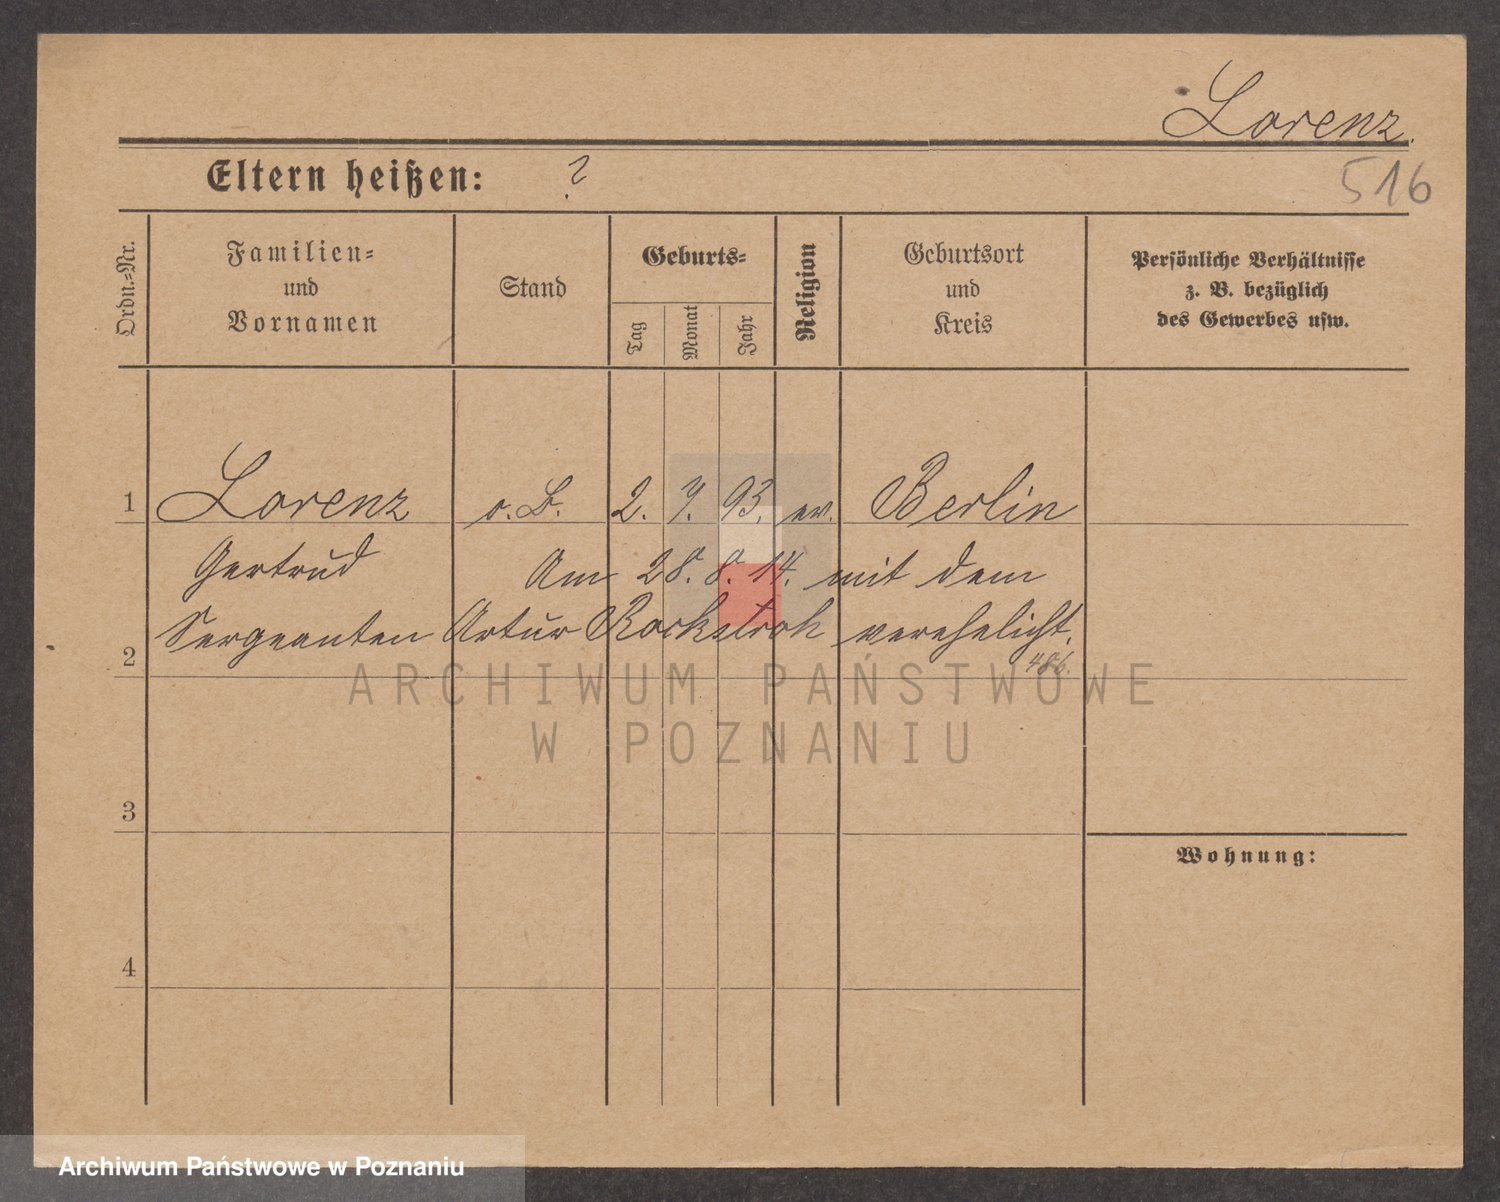 Lorenz.
Eltern heißen: ?
516
Ordn.-Nr.
Familien-
und
Vornamen
Stand
Geburts-
Tag
Monat
Jahr
Religion
Geburtsort
und
Kreis
Persönliche Verhältnisse
z. B. bezüglich
des Gewerbes usw.
1 Lorenz o. B. 2. 7. 93. ev. Berlin
Gertrud Am 28. 8. 14. mit dem
Sergeanten Artur Rockstroh verehelicht.
2
486.
ARCHIWUM PAŃSTWOWE
W POZNANIU
3
Wohnung:
4
Archiwum Państwowe w Poznaniu